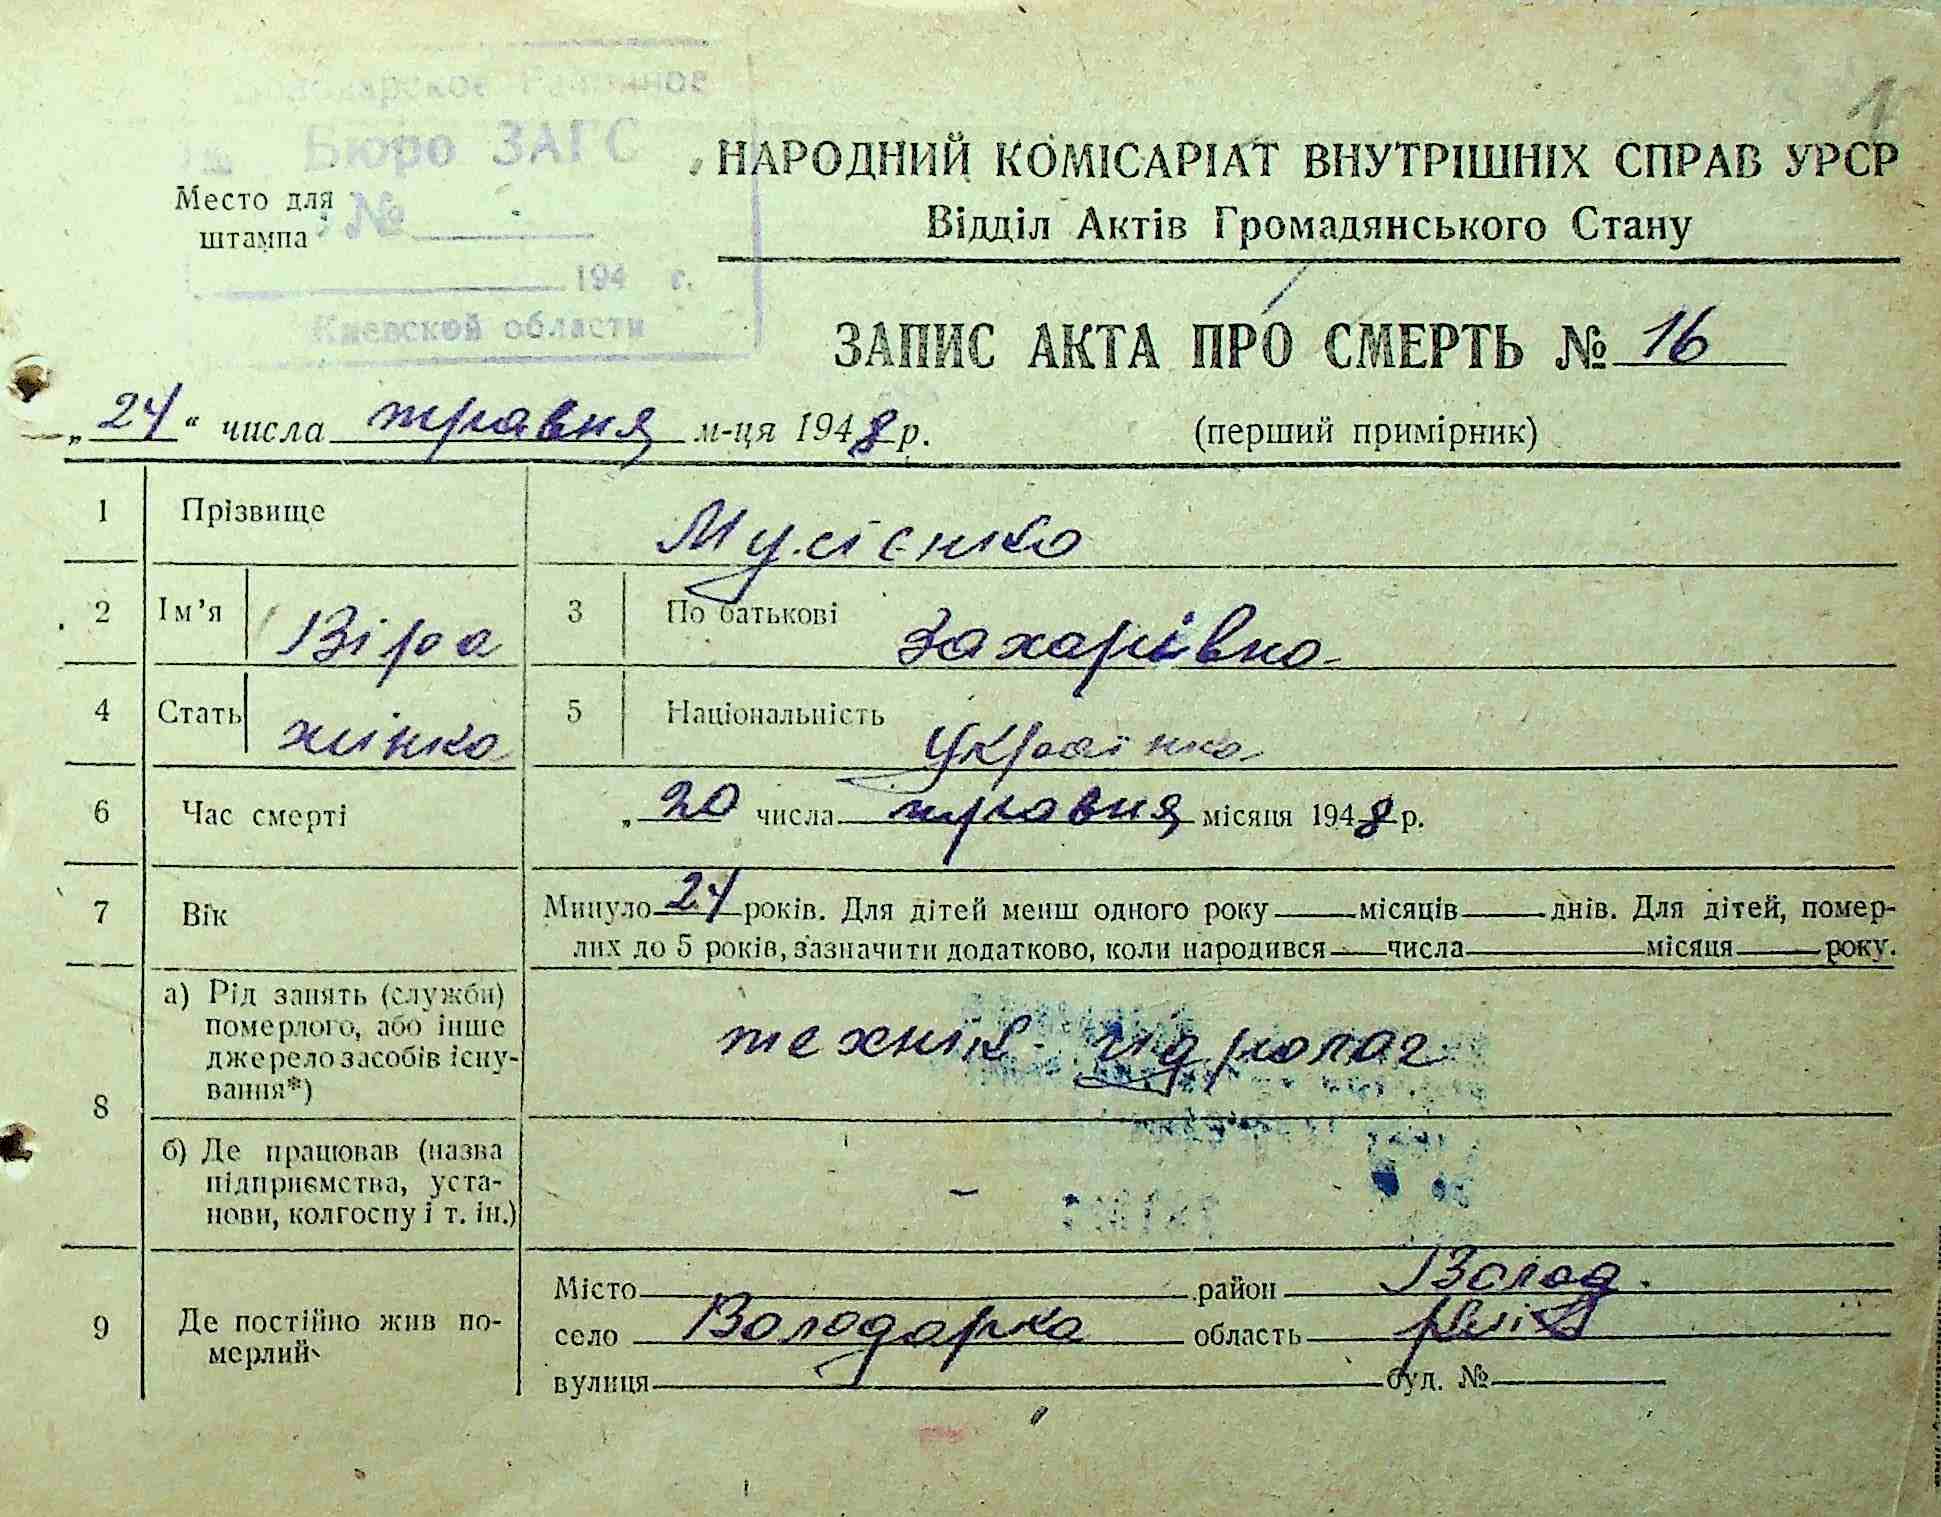 1
Бюро ЗАГС
НАРОДНИЙ КОМІСАРІАТ ВНУТРІШНІХ СПРАВ УРСР
Место для
штампа
№
Відділ Актів Громадянського Стану
194 г.
Киевской области
ЗАПИС АКТА ПРО СМЕРТЬ № 16
„24“ числа травня м-ця 1948 р.
(перший примірник)
1 Прізвище Мусієнко
2 Ім’я Віра 3 По батькові Захарівна
4 Стать жінка 5 Національність Українка
6 Час смерті „20 числа травня місяця 1948 р.
7 Вік Минуло 24 років. Для дітей менш одного року місяців днів. Для дітей, помер-
лих до 5 років, зазначити додатково, коли народився числа місяця року.
8 а) Рід занять (служби)
померлого, або інше
джерело засобів існу-
вання*)
технік гідролог
б) Де працював (назва
підприємства, уста-
нови, колгоспу і т. ін.)
–
9 Де постійно жив по-
мерлий
Місто район Волод.
село Володарка область Київ
вулиця буд. №